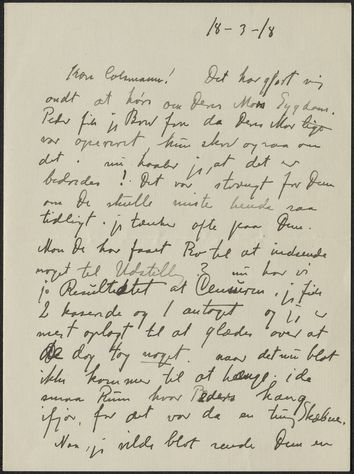 18-3-18
Kære Colsmann! Det har gjort mig
ondt at høre om Deres Mors Sygdom.
Peter fik jo Brev fra da Deres Mor lige
var opereret hun skrev ogsaa om
det. nu haaber jeg, at det er
bedredes! Det var strengt for Dem
om De skulle miste hende saa
tidligt. jeg tænker ofte paa Dem.
Mon De har faaet Ro til at indsende
noget til Udstilling? nu har vi
jo Resultatet af Censuren, jeg fik
2 kasserede og 1 antaget og jeg er
mest oplagt til at glædes over at
De dog tog noget. naar det nu blot
ikke kommer til at hænge i de
smaa Rum hvor Peders hang
ifjor, for det var da en tung Skæbne.
Naa, jeg vilde blot sende Dem en